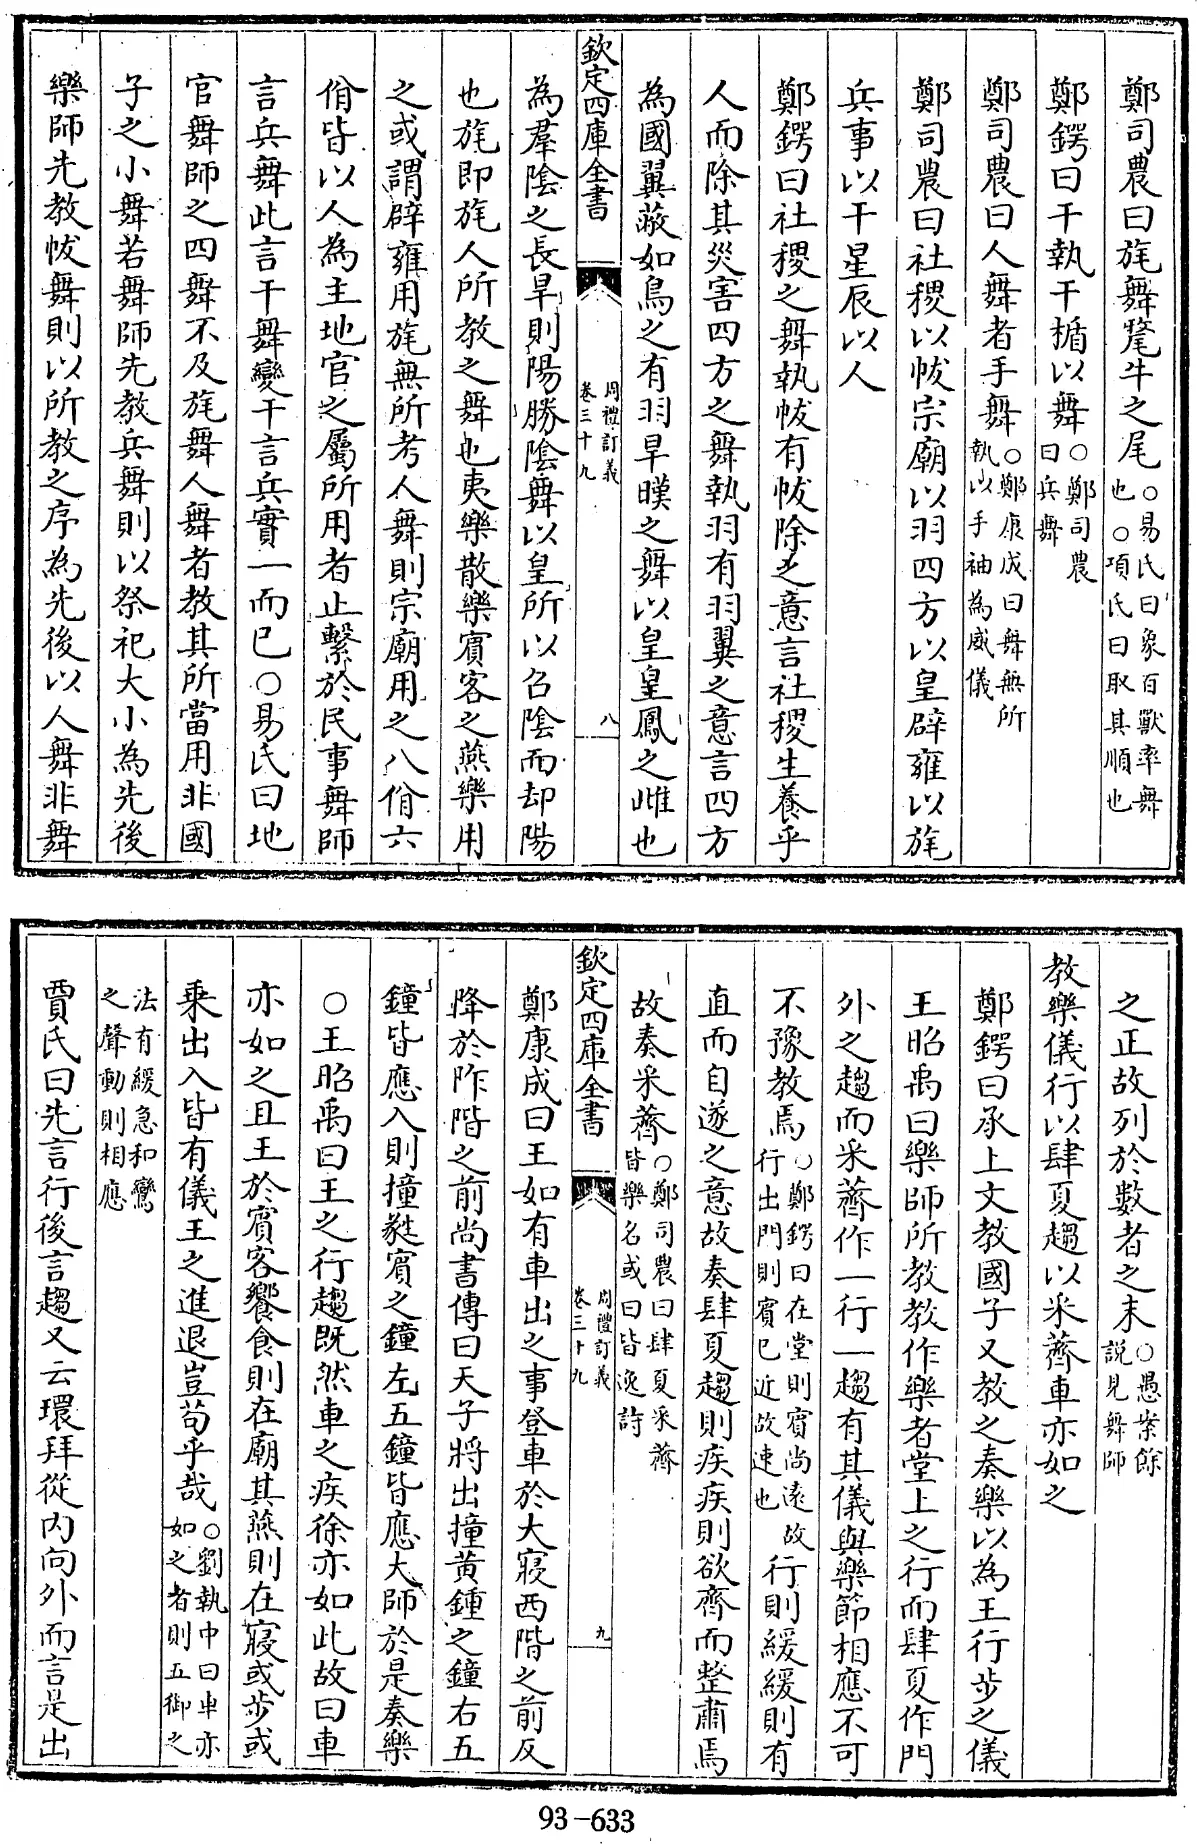 鄭司農曰旄舞氂牛之尾○易氏曰象百獸率舞也○項氏曰取其順也
鄭鍔曰干執干楯以舞○鄭司農曰兵舞
鄭司農曰人舞者手舞○鄭康成曰舞無所執以手袖為威儀
鄭司農曰社稷以帗宗廟以羽四方以皇辟雍以旄
兵事以干星辰以人
鄭鍔曰社稷之舞執帗有帗除之意言社稷生養乎
人而除其災害四方之舞執羽有羽翼之意言四方
為國翼蔽如鳥之有羽旱暵之舞以皇皇鳳之雌也
欽定四庫全書 周禮訂義卷三十九 八
為羣陰之長旱則陽勝陰舞以皇所以召陰而却陽
也旄即旄人所教之舞也夷樂散樂賓客之燕樂用
之或謂辟雍用旄無所考人舞則宗廟用之八佾六
佾皆以人為主地官之屬所用者止繫於民事舞師
言兵舞此言干舞變干言兵實一而已○易氏曰地
官舞師之四舞不及旄舞人舞者教其所當用非國
子之小舞若舞師先教兵舞則以祭祀大小為先後
樂師先教帗舞則以所教之序為先後以人舞非舞
之正故列於數者之末○愚案餘説見舞師
教樂儀行以肆夏趨以采薺車亦如之
鄭鍔曰承上文教國子又教之奏樂以為王行步之儀
王昭禹曰樂師所教教作樂者堂上之行而肆夏作門
外之趨而采薺作一行一趨有其儀與樂節相應不可
不豫教焉○鄭鍔曰在堂則賓尚遠故行出門則賓已近故速也行則緩緩則有
直而自遂之意故奏肆夏趨則疾疾則欲齊而整肅焉
故奏采薺○鄭司農曰肆夏采薺皆樂名或曰皆逸詩
欽定四庫全書 周禮訂義卷三十九 九
鄭康成曰王如有車出之事登車於大寢西階之前反
降於阼階之前尚書傳曰天子將出撞黃鍾之鐘右五
鐘皆應入則撞蕤賓之鐘左五鐘皆應大師於是奏樂
○王昭禹曰王之行趨既然車之疾徐亦如此故曰車
亦如之且王於賓客饗食則在廟其燕則在寢或步或
乘出入皆有儀王之進退豈苟乎哉○劉執中曰車亦如之者則五御之
法有緩急和鸞之聲動則相應
賈氏曰先言行後言趨又云環拜從内向外而言是出
93-633